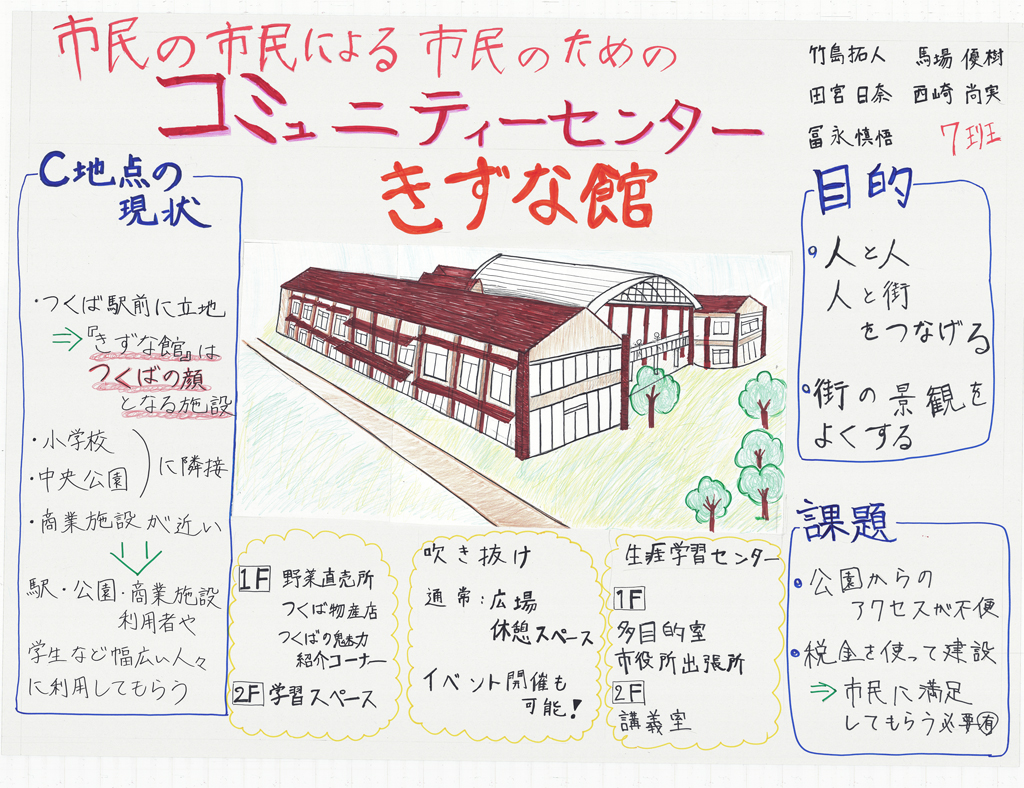 市民の市民による市民のための
コミュニティーセンター
きずな館
竹島拓人 馬場優樹
田宮日奈 西崎尚実
冨永慎悟 7班
C地点の
現状
・つくば駅前に立地
⇒『きずな館』は
つくばの顔
となる施設
・小学校
・中央公園
に隣接
・商業施設が近い
駅・公園・商業施設
利用者や
学生など幅広い人々
に利用してもらう
1F 野菜直売所
つくば物産店
つくばの魅力
紹介コーナー
2F 学習スペース
吹き抜け
通常:広場
休憩スペース
イベント開催も
可能!
生涯学習センター
1F
多目的室
市役所出張所
2F
講義室
目的
人と人
人と街
をつなげる
街の景観を
よくする
課題
公園からの
アクセスが不便
税金を使って建設
⇒市民に満足
してもらう必要有